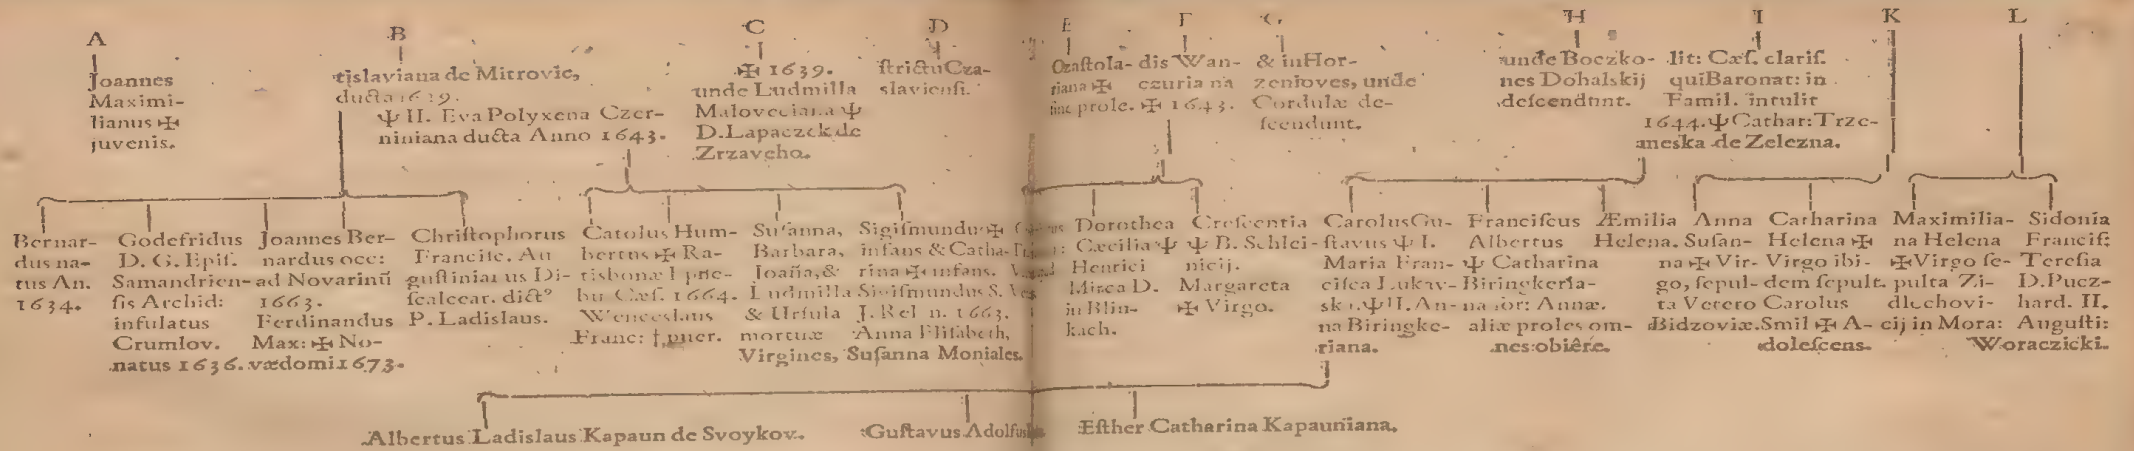 A
Joannes
Maximi-
lianus ✠
juvenis.
B
tislaviana de Mitrovic,
ducta
Ψ II. Eva Polyxena Czer-
niniana ducta Anno 1643.
C
✠ 1639.
unde Ludmilla
Maloveciana Ψ
D. Lapaczek de
Zrzaveho.
D
ſtrictu Cza-
slavienſi.
E
Ozaſtola-
riana ✠
ſine prole.
F
dis Wan-
czuria na
✠ 1643.
G
& in Hor-
zenioves, unde
Cordulæ de-
ſcendunt.
H
unde Boczko-
nes Dohalskij
deſcendunt.
I
lit: Cæſ. clariſ.
qui Baronat: in
Famil. intulit
1644. Ψ Cathar: Trze-
meska de Zelezna.
K
L
Bernar-
dus na-
tus An.
1634.
Godefridus
D. G. Epiſ.
Samandrien-
ſis Archid:
infulatus
Crumlov.
natus 1636.
Joannes Ber-
nardus occ:
ad Novarinū
1663.
Ferdinandus
Max: ✠ No-
vædomi 1673.
Chriſtophorus
Franciſc. Au
guſtinianus Di-
ſcalceat. dictꝰ
P. Ladislaus.
Carolus Hum-
bertus ✠ Ra-
tisbonæ
Cæſ. 1664.
Wenceslaus
Franc: †. puer.
Suſanna,
Barbara,
Joāna, &
Ludmilla
& Urſula
mortuæ
Virgines,
Sigiſmundus ✠
infans & Catha-
rina ✠ infans.
Sigiſmundus S.
J. Rel n. 1663.
Anna Eliſabeth,
Suſanna Moniales.
Dorothea
Cæcilia Ψ
Henrici
Mirca D.
in Blin-
kach.
Creſcentia
Ψ B. Schlei-
nicij.
Margareta
✠ Virgo.
Carolus Gu-
ſtavus Ψ I.
Maria Fran-
ciſca Lukav-
ska. Ψ II. An-
na Biringke-
riana.
Franciſcus
Albertus
Ψ Catharina
Biringkerſa-
na ſor: Annæ.
aliæ proles om-
nes obiêre.
Æmilia
Helena.
Anna
Suſan-
na ✠ Vir-
go, ſepul-
ta Vetero
Bidzoviæ.
Catharina
Helena ✠
Virgo ibi-
dem ſepult.
Carolus
Smil ✠ A-
doleſcens.
Maximilia-
na Helena
✠ Virgo ſe-
pulta Zi-
dlochovi-
cij in Mora:
Sidonia
Franciſ:
Tereſia
D. Pucz-
hard. II.
Auguſti:
Woraczicki.
Albertus Ladislaus Kapaun de Svoykov.
Guſtavus Adolfus
Eſther Catharina Kapauniana.